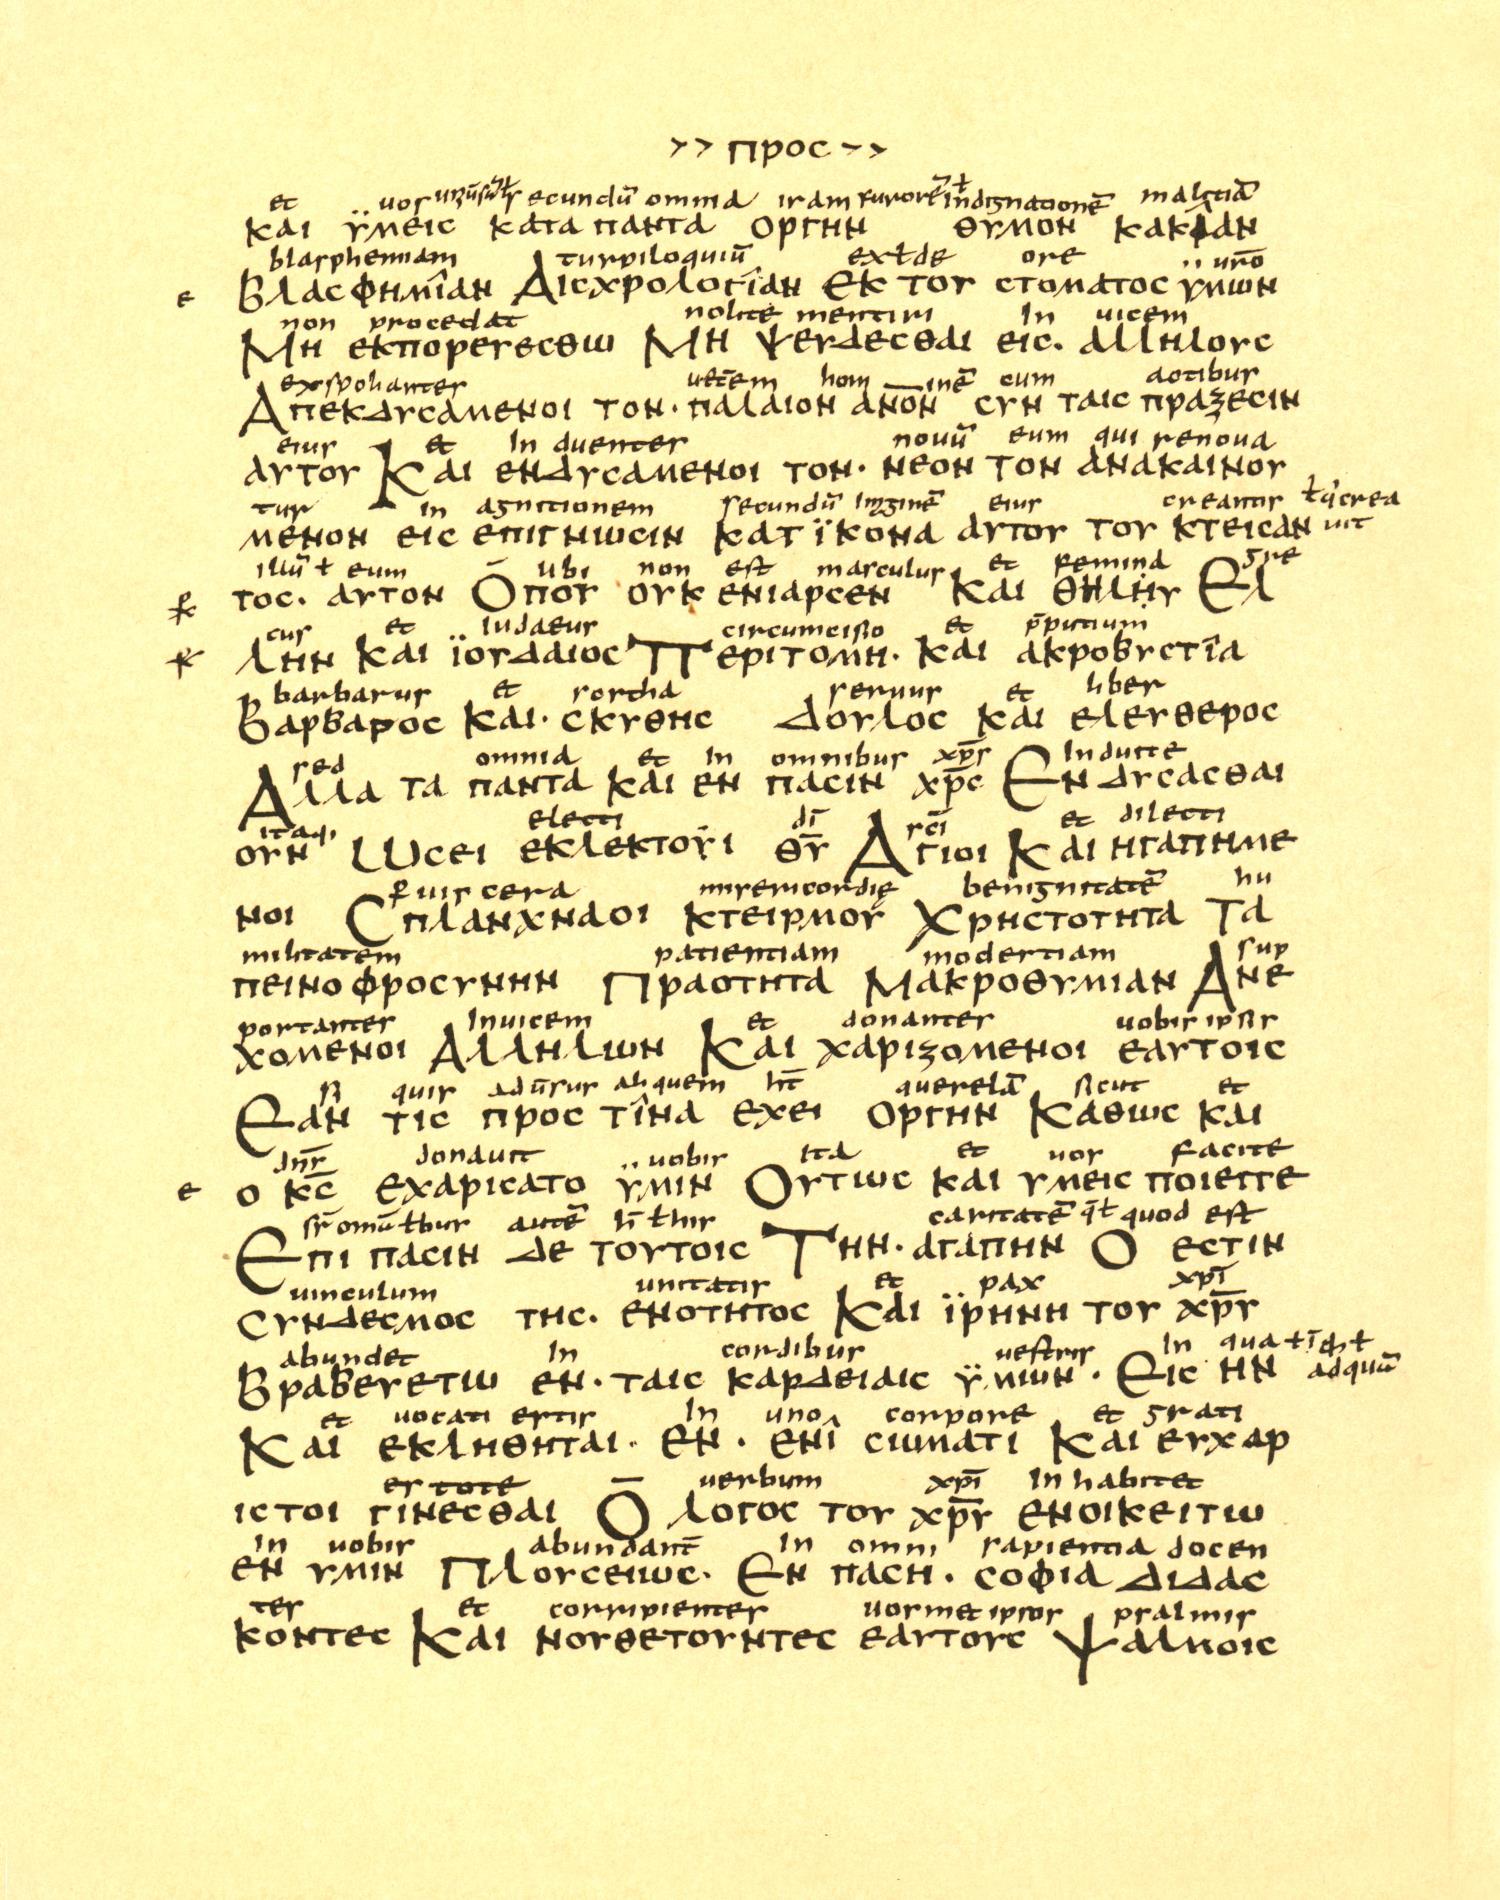 >> προс >>
et uos secundū omnia iram furorē ł indignationē malitiā
και ϋμειс κατα παντα οργην θυμον κακιαν
blasphemiam turpiloquiū ex ł de ore uro
βλασφημῖαν Αισχρολογῖαν εκ του στοματος ϋμων
e
non procedat nolite mentiri in uicem
Μη εκπορευεσθω Μη ψευδεσθαι εις· αλληλους
exspoliantes ueterem hom inē cum actibus
Απεκδυσαμενοι τον· παλαιον ανον συν ταις πραξεσιν
eius et induentes nouū eum qui renoua
αυτου Και ενδυσαμενοι τον· νεον τον ανακαινου
tur in agnitionem secundū imaginē eius creantis ł q crea
μενον εις επιγνωσιν κατ ϊκονα αυτου του κτεισαν uit
illū ł eum ubi non est masculus et femina gre
τος· αυτον Οπου ουκ ενιαρσεν και θηλην Ελ
cus et iudaeus circumcisio et ppitium
λην και ϊουδαιος Περιτομη· και ακροβυστῖα
barbarus et scitha seruus et liber
Βαρβαρος και· σκυθης δουλος και ελευθερος
sed omnia et in omnibus xps induite
Αλλα τα παντα και εν πασιν χρς Εν δυσασθαι
itaq electi di sci et dilecti
ουν Ωσει εκλεκτοϋι θυ Αγιοι Και ηγαπημε
uiscera misericordię benignitatē hu
νοι Сπλανχναοι κτειρμου Χρηστοτητα Τα
militatem patientiam modestiam sup
πεινοφροσυνην Πραοτητα Μακροθυμιαν Ανε
portantes inuicem et donantes uobis ipsis
χομενοι Αλληλων Και χαριζομενοι εαυτοις
si quis aduersus aliquem ht querelā sicut et
Εαν τις προς τῖνα εχει οργην Καθως και
dns donauit uobis ita et uos facite
ο κς εχαρισατο ϋμιν Ουτως και υμεις ποιειτε
e
sr omnibus autē h ł his caritatē q ł quod est
Επι πασιν δε τουτοις Την· αγαπην Ο εστιν
uinculum unitatis et pax xpi
συνδεσμος της· ενοτητος Και ϊρηνη του χρυ
abundet in cordibus uestris in qua ł
Βραβευετω εν· ταις καρδειαις ϋμων· Εις ην adquā
et uocati estis in uno corpore et grati
Και εκληθηται· εν· ενῖ σωματι Και ευχαρ
estote uerbum xpi inhabitet
ιστοι γινεσθαι Ο λογος του χρυ ενοικειτω
in uobis abundant in omni sapientia docen
εν υμιν Πλουσειως· Εν παση· σοφια διδασ
tes et corripientes uosmet ipsos psalmis
κοντες Και νουθετουντες εαυτους Ψαλμοις